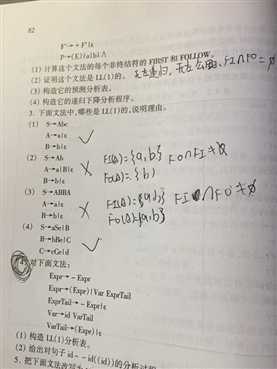 82
F'→*F'|ε
P→(E)|a|b|∧
(1) 计算这个文法的每个非终结符的 FIRST 和 FOLLOW。
(2) 证明这个文法是 LL(1)的。
(3) 构造它的预测分析表。
(4) 构造它的递归下降分析程序。
3. 下面文法中，哪些是 LL(1)的，说明理由。
(1) S→Abc
A→a|ε
B→b|ε
(2) S→Ab
A→a|B|ε
B→b|ε
FI(A)={a,b}
FO(A)={b}
(3) S→ABBA
A→a|ε
B→b|ε
(4) S→aSe|B
B→bBe|C
C→cCe|d
4. 对下面文法：
Expr→-Expr
Expr→(Expr)|Var ExprTail
ExprTail→-Expr|ε
Var→id VarTail
VarTail→(Expr)|ε
(1) 构造 LL(1)分析表。
(2) 给出对句子 id--id((id))的分析过程
5. 把下面文法改写为